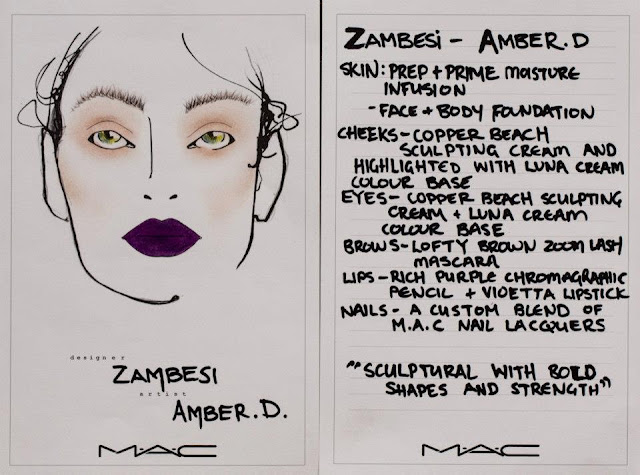 designer
ZAMBESI
artist
AMBER.D.
M·A·C
ZAMBESI - AMBER.D
SKIN: PREP + PRIME MOISTURE
INFUSION
- FACE + BODY FOUNDATION
CHEEKS - COPPER BEACH
SCULPTING CREAM AND
HIGHLIGHTED WITH LUNA CREAM
COLOUR BASE
EYES - COPPER BEACH SCULPTING
CREAM + LUNA CREAM
COLOUR BASE
BROWS - LOFTY BROWN ZOOM LASH
MASCARA
LIPS - RICH PURPLE CHROMAGRAPHIC
PENCIL + VIOETTA LIPSTICK
NAILS - A CUSTOM BLEND OF
M.A.C NAIL LACQUERS
"SCULPTURAL WITH BOLD
SHAPES AND STRENGTH"
M·A·C